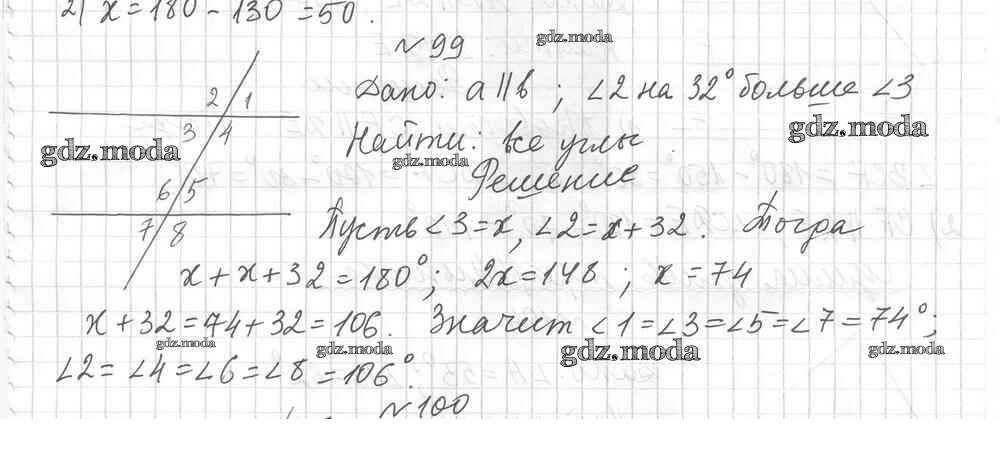 2) x = 180 - 130 = 50.
№ 99
gdz.moda
2 1
Дано: a || b ; ∠2 на 32° больше ∠3
3 4
gdz.moda
gdz.moda
Найти: все углы.
gdz.moda
Решение
6 5
7 8
Пусть ∠3 = x, ∠2 = x + 32. Тогда
x + x + 32 = 180°; 2x = 148 ; x = 74
x + 32 = 74 + 32 = 106. Значит ∠1 = ∠3 = ∠5 = ∠7 = 74°;
gdz.moda gdz.moda gdz.moda gdz.moda
∠2 = ∠4 = ∠6 = ∠8 = 106°.
№ 100